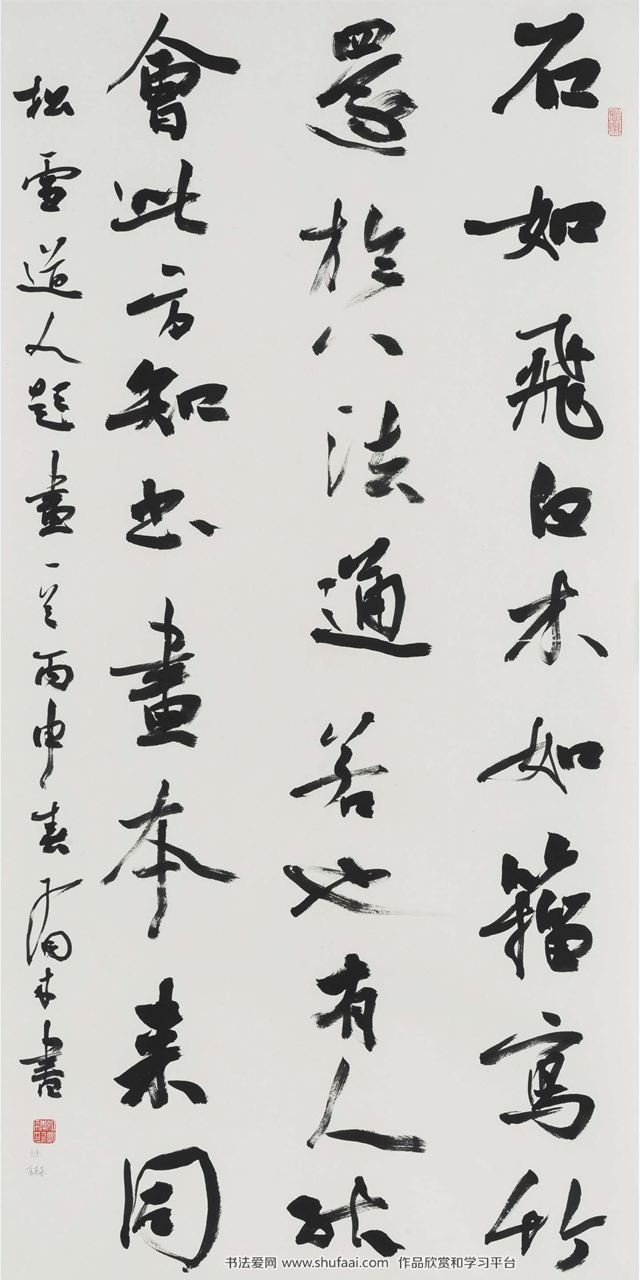 石如飛白木如籀寫竹
還於八法通若也有人能
會此方知書畫本來同
松雪道人題畫一首丙申春
書
书法爱网 www.shufaai.com 作品欣赏和学习平台